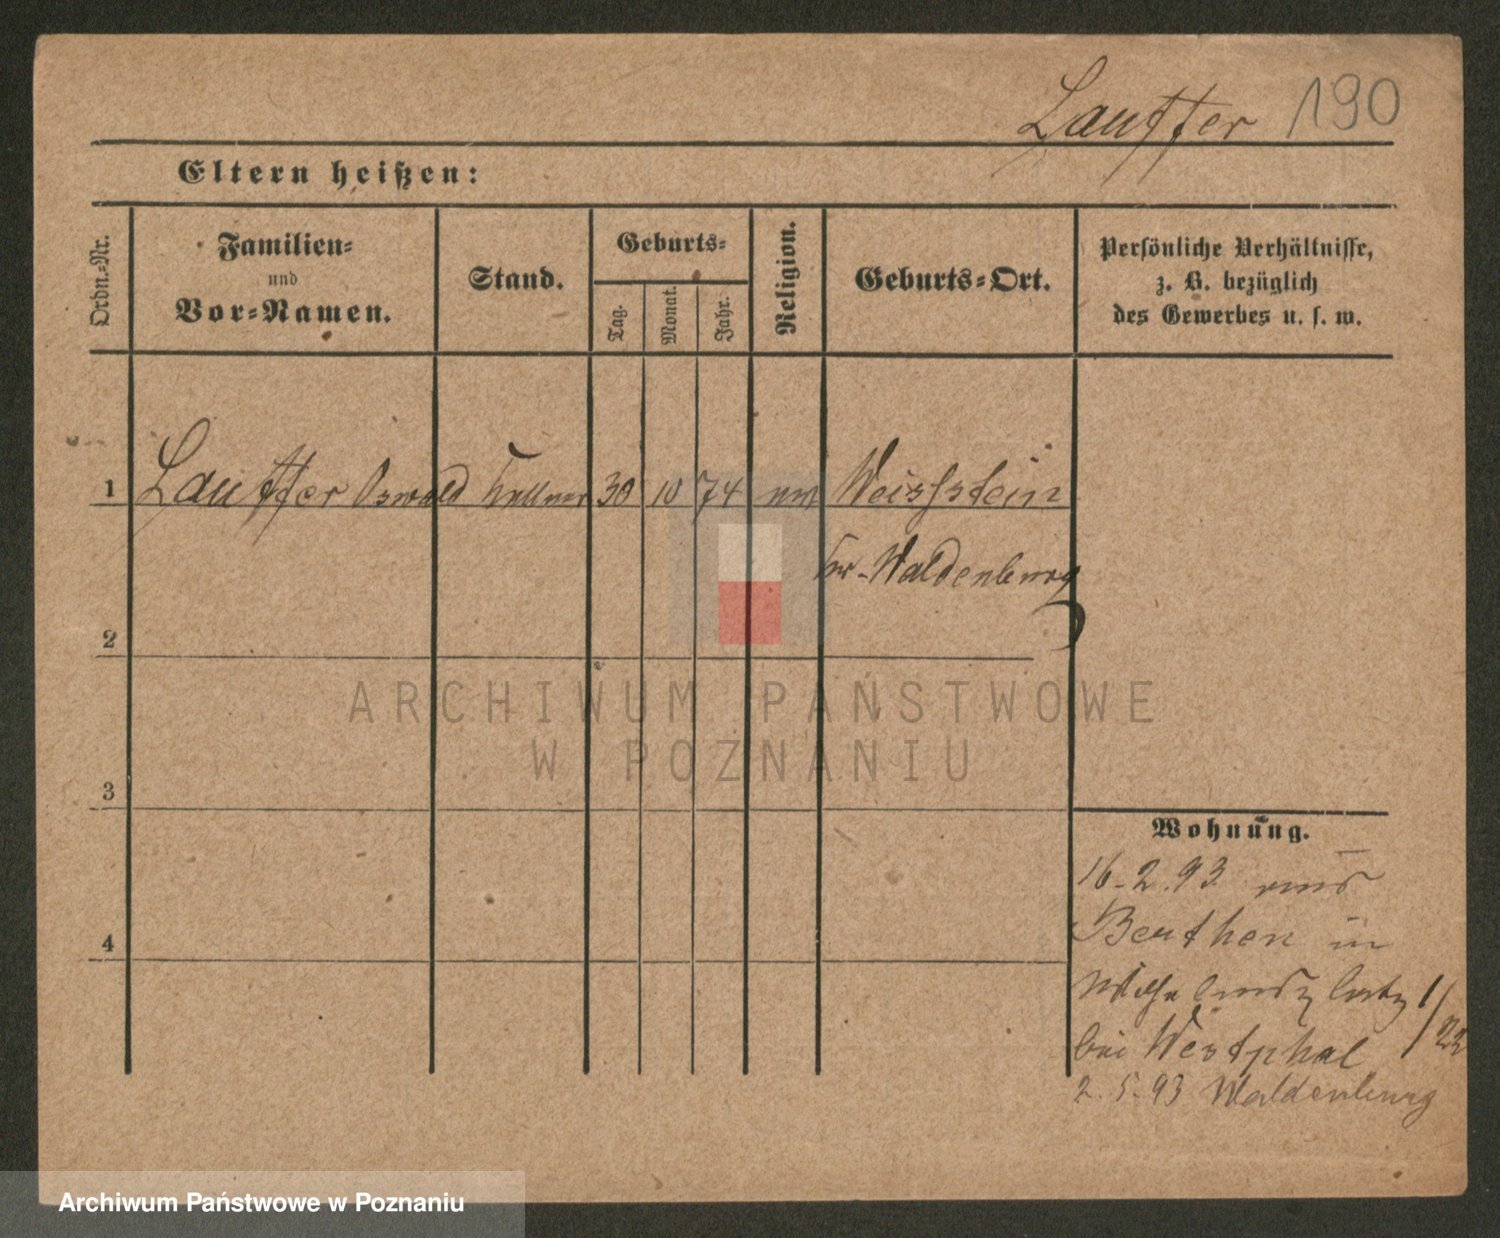 Lauffer 190
Eltern heißen:
Ordn.-Nr.
Familien-
und
Vor-Namen.
Stand.
Geburts-
Tag.
Monat.
Jahr.
Religion.
Geburts-Ort.
Persönliche Verhältnisse,
z. B. bezüglich
des Gewerbes u. s. w.
1 Lauffer Oswald Kellner 30 10 74 ev Weissstein
Kr. Waldenburg
2
3
4
Wohnung.
16.2.93 aus
Beuthen in
1/22
bei Westphal
2.5.93 Waldenburg
ARCHIWUM PAŃSTWOWE
W POZNANIU
Archiwum Państwowe w Poznaniu